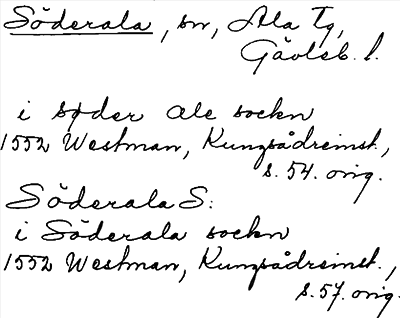 Söderala, sn, Ala Tg,
Gävleb. l.
i søder ale sockn
1552 Westman, Kungsådreinst.,
s. 54. orig.
Söderala S:
i Söderala sockn
1552 Westman, Kungsådreinst.,
s. 57. orig.